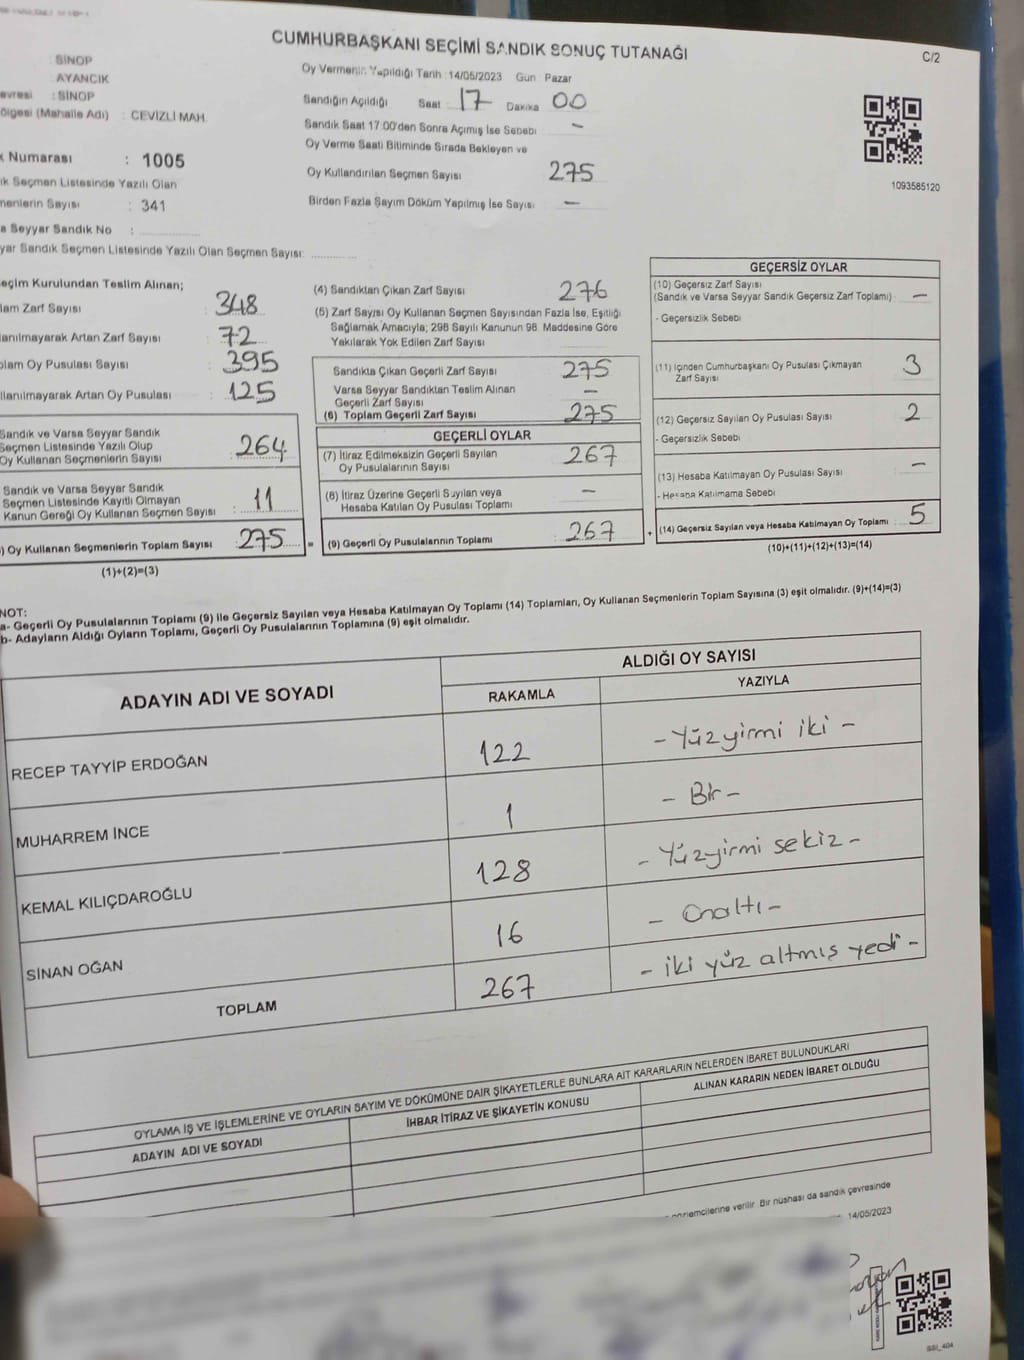 CUMHURBAŞKANI SEÇİMİ SANDIK SONUÇ TUTANAĞI
C/2
: SİNOP
AYANCIK
: SİNOP
(Mahalle Adı) : CEVİZLİ MAH.
Numarası : 1005
Seçmen Listesinde Yazılı Olan
Sayısı : 341
Seyyar Sandık No :
Sandık Seçmen Listesinde Yazılı Olan Seçmen Sayısı:
Oy Vermenin Yapıldığı Tarih : 14/05/2023 Gün : Pazar
Sandığın Açıldığı Saat : 17 Dakika 00
Sandık Saat 17:00'den Sonra Açımış İse Sebebi –
Oy Verme Saati Bitiminde Sırada Bekleyen ve
Oy Kullandırılan Seçmen Sayısı 275
Birden Fazla Sayım Döküm Yapılmış İse Sayısı –
1093585120
Seçim Kurulundan Teslim Alınan;
Zarf Sayısı : 348
Artan Zarf Sayısı : 72
Oy Pusulası Sayısı : 395
Artan Oy Pusulası : 125
Sandık ve Varsa Seyyar Sandık
Seçmen Listesinde Yazılı Olup
Oy Kullanan Seçmenlerin Sayısı : 264
Sandık ve Varsa Seyyar Sandık
Seçmen Listesinde Kayıtlı Olmayan
Kanun Gereği Oy Kullanan Seçmen Sayısı : 11
) Oy Kullanan Seçmenlerin Toplam Sayısı : 275
(1)+(2)=(3)
(4) Sandıktan Çıkan Zarf Sayısı 276
(5) Zarf Sayısı Oy Kullanan Seçmen Sayısından Fazla İse, Eşitliği
Sağlamak Amacıyla; 298 Sayılı Kanunun 98. Maddesine Göre
Yakılarak Yok Edilen Zarf Sayısı
Sandıkta Çıkan Geçerli Zarf Sayısı 275
Varsa Seyyar Sandıktan Teslim Alınan
Geçerli Zarf Sayısı –
(6) Toplam Geçerli Zarf Sayısı 275
GEÇERLİ OYLAR
(7) İtiraz Edilmeksizin Geçerli Sayılan
Oy Pusulalarının Sayısı 267
(8) İtiraz Üzerine Geçerli Sayılan veya
Hesaba Katılan Oy Pusulası Toplamı –
= (9) Geçerli Oy Pusulalarının Toplamı : 267
GEÇERSİZ OYLAR
(10) Geçersiz Zarf Sayısı
(Sandık ve Varsa Seyyar Sandık Geçersiz Zarf Toplamı) –
- Geçersizlik Sebebi
(11) İçinden Cumhurbaşkanı Oy Pusulası Çıkmayan
Zarf Sayısı 3
(12) Geçersiz Sayılan Oy Pusulası Sayısı 2
- Geçersizlik Sebebi
(13) Hesaba Katılmayan Oy Pusulası Sayısı –
- Hesaba Katılmama Sebebi
+ (14) Geçersiz Sayılan veya Hesaba Katılmayan Oy Toplamı 5
(10)+(11)+(12)+(13)=(14)
NOT:
a- Geçerli Oy Pusulalarının Toplamı (9) ile Geçersiz Sayılan veya Hesaba Katılmayan Oy Toplamı (14) Toplamları, Oy Kullanan Seçmenlerin Toplam Sayısına (3) eşit olmalıdır. (9)+(14)=(3)
b- Adayların Aldığı Oyların Toplamı, Geçerli Oy Pusulalarının Toplamına (9) eşit olmalıdır.
ADAYIN ADI VE SOYADI
ALDIĞI OY SAYISI
RAKAMLA YAZIYLA
RECEP TAYYİP ERDOĞAN 122 - Yüzyirmi iki -
MUHARREM İNCE 1 - Bir -
KEMAL KILIÇDAROĞLU 128 - Yüzyirmi sekiz -
SİNAN OĞAN 16 - Onaltı -
TOPLAM 267 - iki yüz altmış yedi -
OYLAMA İŞ VE İŞLEMLERİNE VE OYLARIN SAYIM VE DÖKÜMÜNE DAİR ŞİKAYETLERLE BUNLARA AİT KARARLARIN NELERDEN İBARET BULUNDUKLARI
ADAYIN ADI VE SOYADI
İHBAR İTİRAZ VE ŞİKAYETİN KONUSU
ALINAN KARARIN NEDEN İBARET OLDUĞU
verilir. Bir nüshası da sandık çevresinde
14/05/2023